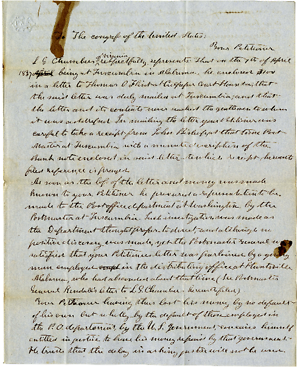 To The congress of the United States.
Your Petitioner
L G Chambers, respectfully represents that on the 7th of April
1837 being at Tuscumbia in Alabama, he enclosed
in a letter to Thomas
this said letter was duly mailed at Tuscumbia, and that
the letter and its contents never reached the gentleman to whom
it was addressed. In mailing the letter your Petitioner was
careful to take a receipt from John at that time Post-
Master at Tuscumbia with a description of the
enclosed in said letter, to which receipt herewith
filed reference is prayed.
As soon as the loss of the letter and money was made
known to your Petitioner he procured a representation to be
made to the Post office department at Washington by the
Postmaster at Tuscumbia. Such investigation was made as
the Department thought proper to direct, and although no
positive discovery was made, yet the Postmaster General was
satisfied that your Petitioner's letter was purloined by a young
man employed in the distributing office at
Alabama, who had absconded about that time. See Postmaster
General letter to L. G. Chambers herewith filed.
Your Petitioner having thus lost his money, by no default
of his own but wholly by the default of those employed in
the P.O. department by the U.S. government, conceives himself
entitled in justice, to have his money repaid by that government.
He trusts that the delay in asking justice will not be